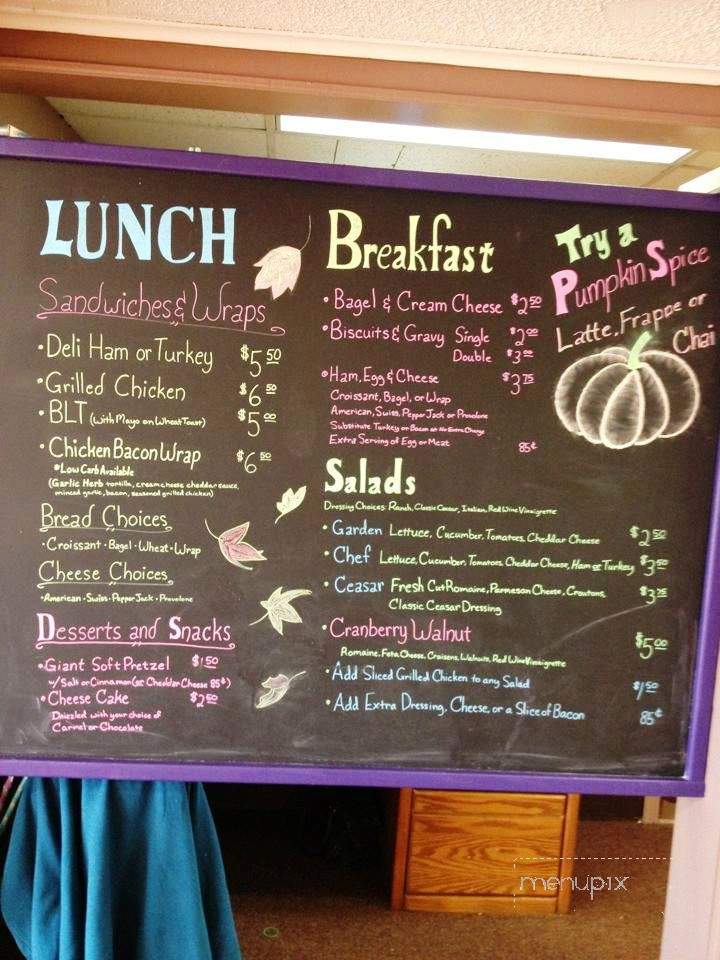 LUNCH
Sandwiches & Wraps
•Deli Ham or Turkey $5 50
•Grilled Chicken $6 50
•BLT (with Mayo on Wheat Toast) $5 00
•Chicken Bacon Wrap $6 50
*Low Carb Available
(Garlic Herb tortilla, cream cheese cheddar sauce,
minced garlic, bacon, seasoned grilled chicken)
Bread Choices
•Croissant•Bagel•Wheat•Wrap
Cheese Choices
•American•Swiss•Pepper Jack•Provolone
Desserts and Snacks
•Giant Soft Pretzel $1 50
w/Salt or Cinnamon (or Cheddar Cheese 85¢)
•Cheese Cake $2 50
Drizzled with your choice of
Carmel or Chocolate
Breakfast
•Bagel & Cream Cheese $2 50
•Biscuits & Gravy Single $2 00
Double $3 00
•Ham, Egg & Cheese $3 75
Croissant, Bagel, or Wrap
American, Swiss, Pepper Jack or Provolone
Substitute Turkey or Bacon at No Extra Charge
Extra Serving of Egg or Meat 85¢
Try a
Pumpkin Spice
Latte, Frappe or
Chai
Salads
Dressing Choices: Ranch, Classic Ceasar, Italian, Red Wine Vinaigrette
•Garden Lettuce, Cucumber, Tomatoes, Cheddar Cheese $2 50
•Chef Lettuce, Cucumber, Tomatoes, Cheddar Cheese, Ham or Turkey $3 50
•Ceasar Fresh Cut Romaine, Parmesan Cheese, Croutons, $3 75
Classic Ceasar Dressing
•Cranberry Walnut $5 00
Romaine, Feta Cheese, Craisens, Walnuts, Red Wine Vinaigrette
•Add Sliced Grilled Chicken to any Salad $1 50
•Add Extra Dressing, Cheese, or a Slice of Bacon 85¢
menupix